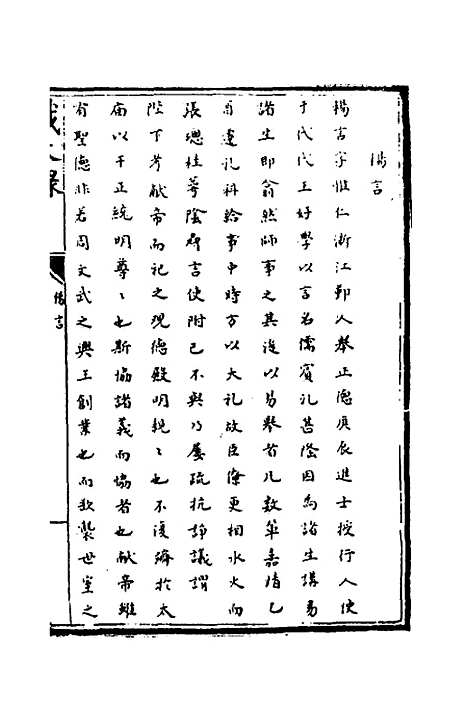 楊言
楊言字惟仁浙江鄞人舉正德庚辰進士授行人使
于代代王好學以言名儒賓礼甚隆因為諸生講易
諸生即翕然師事之其後以易舉者凡数輩嘉靖乙
酉遷礼科給事中時方以大礼故臣僚更相水火而
張璁桂萼陰尉言使附己不與乃屡疏抗諍議謂
陛下考献帝而祀之現德殿明親〻也不復躋於太
庙以干正統明尊〻也斯協諸義而協者也献帝雖
有聖德非若周文武之興王創業也而欲襲世室之
楊言